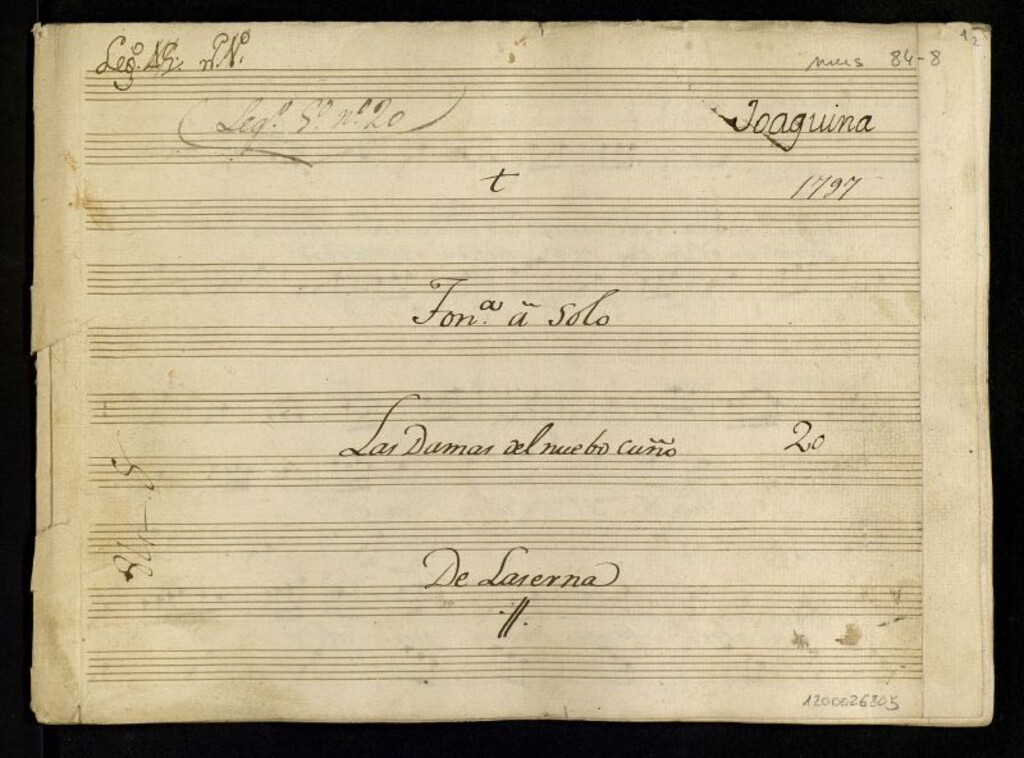 Leg.º
mus 84-8
Legº. 5º. nº. 20
Joaquina
t
1797
Ton.ª â Solo
Las Damas del nuebo cuño 20
De Laserna
84-8
1200026805